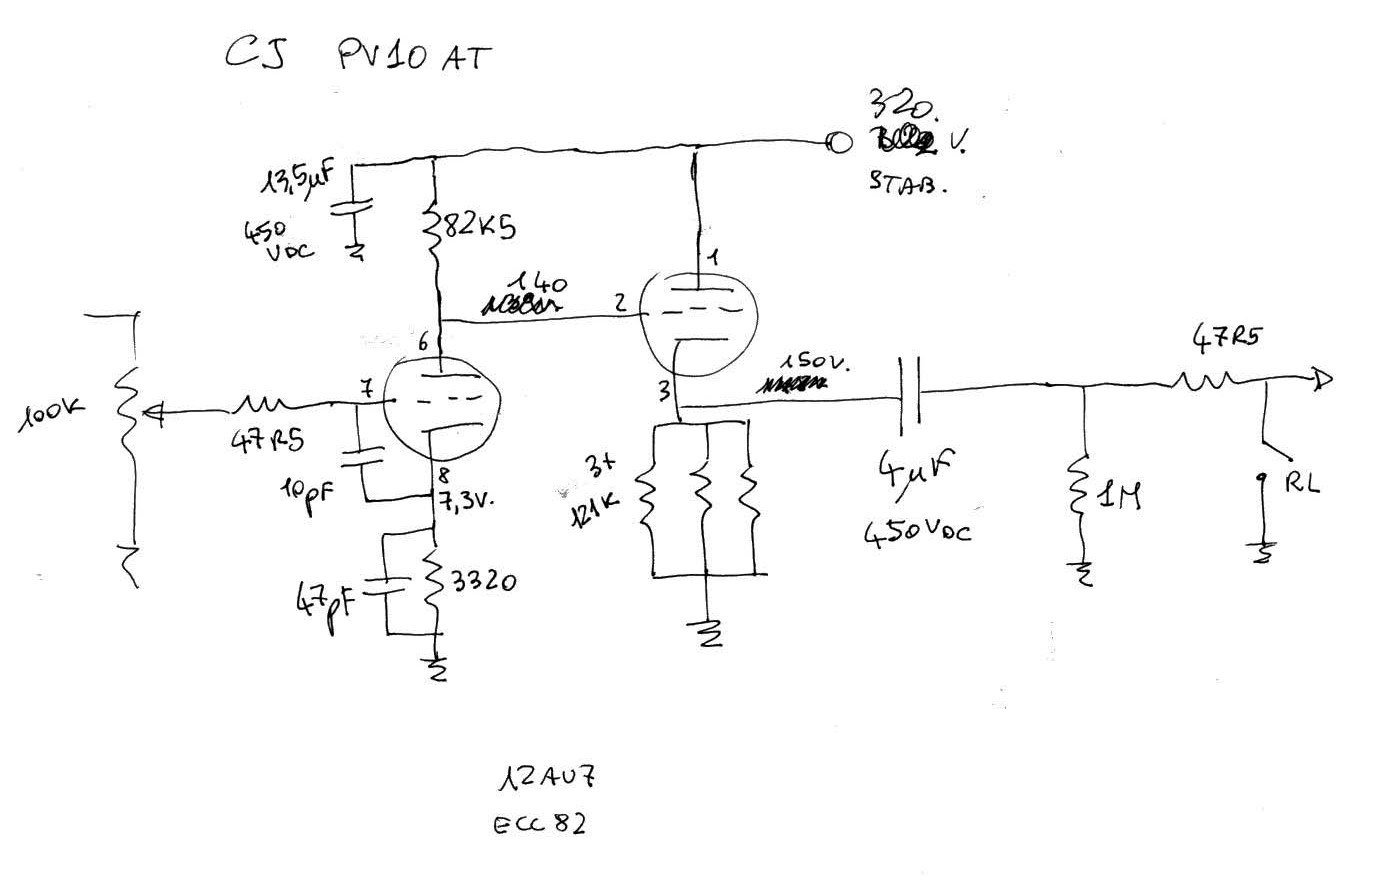 CJ PV10 AT
320.
V.
STAB.
13,5µF
450
VDC
82K5
140
1
2
6
7
100K
47R5
10pF
8
7,3V.
47pF
3320
3
150V.
3+
121K
4µF
450VDC
47R5
1M
RL
12AU7
ECC 82